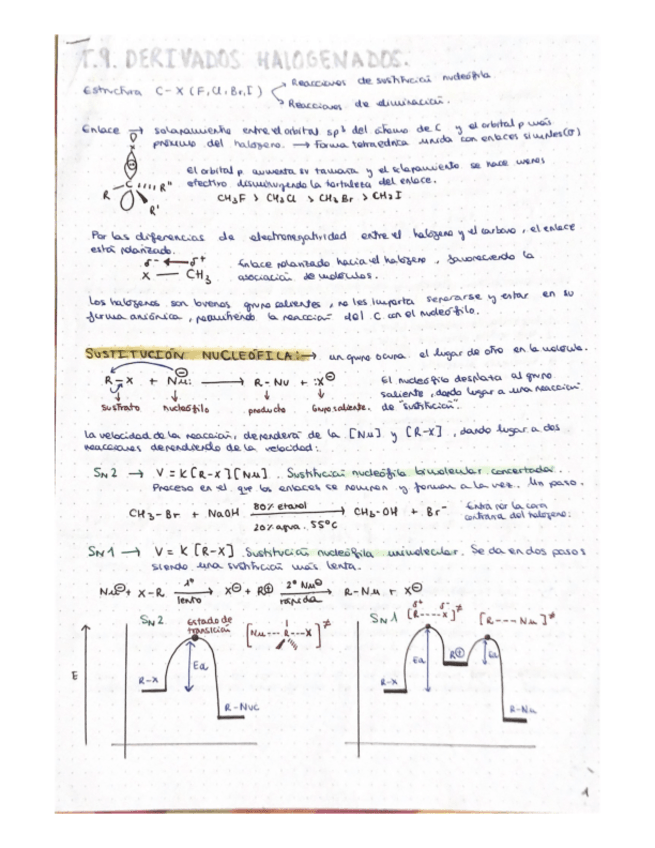 T.9. DERIVADOS HALOGENADOS.
Estructura C-X (F, Cl, Br, I) → Reacciones de sustitución nucleófila
→ Reacciones de eliminación.
Enlace → solapamiento entre el orbital sp³ del átomo de C y el orbital p más
próximo del halógeno. → Forma tetraédrica unida con enlaces simples (σ)
El orbital p aumenta su tamaño y el solapamiento se hace menos
efectivo disminuyendo la fortaleza del enlace.
R C R"
R'
CH₃F > CH₃Cl > CH₃Br > CH₃I
Por las diferencias de electronegatividad entre el halógeno y el carbono, el enlace
está polarizado.
δ- δ+
X — CH₃
Enlace polarizado hacia el halógeno, favoreciendo la
asociación de moléculas.
Los halógenos son buenos grupos salientes, no les importa separarse y estar en su
forma aniónica, permitiendo la reacción del C con el nucleófilo.
SUSTITUCIÓN NUCLEÓFILA: → un grupo ocupa el lugar de otro en la molécula.
R-X + Nu:⊖ → R-Nu + :X⊖
sustrato nucleófilo producto Grupo saliente.
El nucleófilo desplaza al grupo
saliente, dando lugar a una reacción
de "sustitución".
La velocidad de la reacción, dependerá de la [Nu] y [R-X], dando lugar a dos
reacciones dependiendo de la velocidad:
SN2 → V = K [R-X][Nu]. Sustitución nucleófila bimolecular concertada.
Proceso en el que los enlaces se rompen y forman a la vez. Un paso.
CH₃-Br + NaOH 80% etanol → 20% agua, 55°C CH₃-OH + Br⁻
Entra por la cara
contraria del halógeno.
SN1 → V = K [R-X]. Sustitución nucleófila unimolecular. Se da en dos pasos
siendo una sustitución más lenta.
Nu⊖ + X-R 1º lento → X⊖ + R⊕ 2º Nu⊖ rápida → R-Nu + X⊖
SN2 Estado de
transición
[Nu---R---X]≠
E
Ea
R-X
R-Nuc
SN1 [R----X]≠ δ+ δ-
[R---Nu]≠
Ea R⊕ Ea
R-X
R-Nu
1